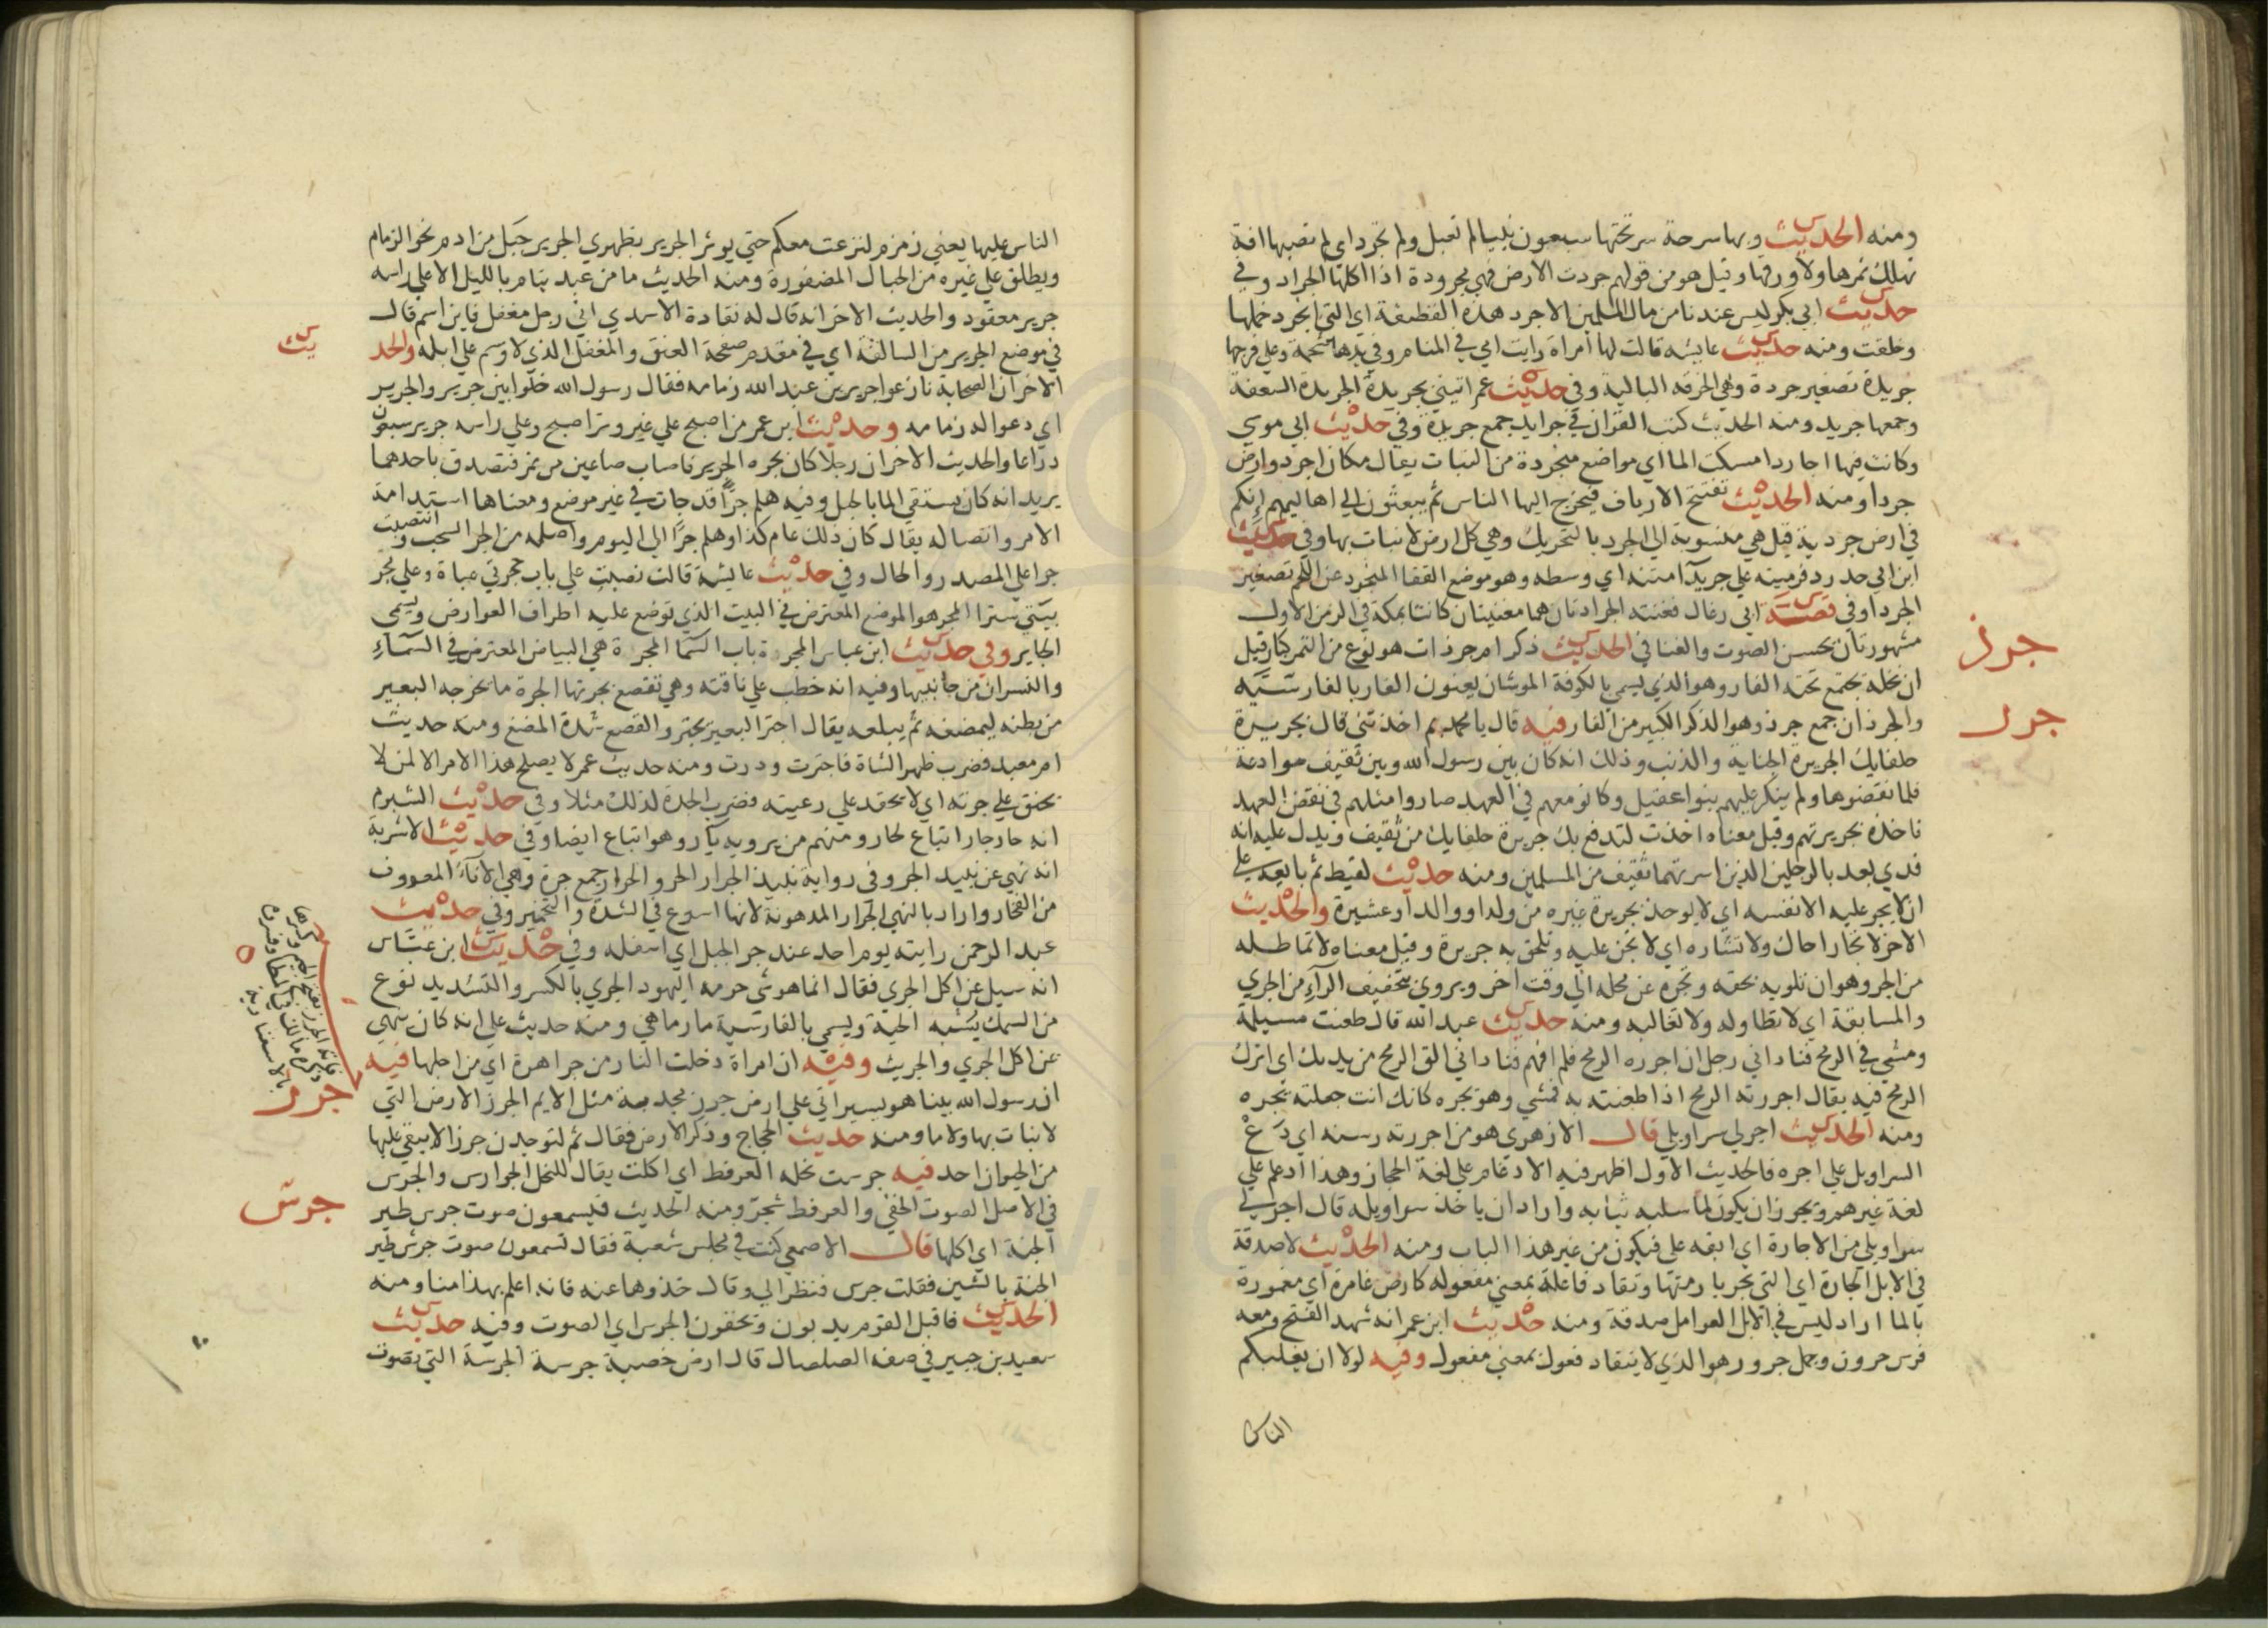 ومنه الحديث وبها سرحة سر تحتها سبعون نبيا لم تعبل ولم تجرد اي لم تصبها افة
تهلك ثمرها ولا ورقها وقيل هو من قولهم جردت الارض فهي مجرودة اذا اكلها الجراد وفي
حديث ابي بكر ليس عندنا من مال المسلمين الا جرد هذه القطيفة اي التي انجرد خملها
وخلقت ومنه حديث عايشه قالت لها امراة رايت امي في المنام وفي يدها شحمة وعلي فرجها
جريدة تصغير جردة وهي الخرقه البالية وفي حديث عمر اتيني بجريدة الجريدة السعفة
وجمعها جريد ومنه الحديث كتب القران في جرايد جمع جريدة وفي حديث ابي موسي
وكانت فيها اجارد امسكت الما اي مواضع منجردة من النبات يقال مكان اجرد وارض
جردا ومنه الحديث تفتتح الارياف فيخرج اليها الناس ثم يبعثون الي اهاليهم إنكم
في ارض جردية قيل هي منسوبة الي الجرد بالتحريك وهي كل ارض لا نبات بها وفي حديث
ابن ابي حدرد فرميته علي جريدآ متنه اي وسطه وهو موضع القفا المنجرد عن اللحم تصغير
الجردا وفي قصة ابي رغال فغنته الجرادتان هما مغنيتان كانتا بمكة في الزمن الاول
مشهورتان بحسن الصوت والغنا في الحديث ذكر ام جرذان هو نوع من التمر كبار قيل
ان نخله يجتمع تحته الفار وهو الذي يسمي بالكوفة الموشان يعنون الفار بالفارسّيَه
والجرذان جمع جرذ وهو الذكر الكبير من الفار فيه قال يا محمد بم اخذتني قال بجريرة
حلفايك الجريرة الجناية والذنب وذلك انه كان بين رسول الله وبين ثقيف موادعة
فلما نقضوها ولم ينكر عليهم بنوا عقيل وكانو معهم في العهد صاروا مثلهم في نقض العهد
فاخذه بجريرتهم وقيل معناه اخذت لتدفع بك جريرة حلفايك من ثقيف ويدل عليه انه
فدي بعد بالرجلين الذين اسرتهما ثقيف من المسلمين ومنه حديث لقيط ثم بايعه علي
ان لا يجر عليه الا نفسه اي لا يوخذ بجريرة غيره من ولد او والد او عشيرة والحديث
الاخر لا تجار اخاك ولا تشاره اي لا تجن عليه وتلحق به جريرة وقيل معناه لا تماطله
من الجر وهو ان تلويه بحقه وتجره عن محله الي وقت اخر ويروي بتخفيف الرآء من الجري
والمسابقة اي لا تطاوله ولا تغالبه ومنه حديث عبد الله قال طعنت مسيلمة
ومشي في الرمح فناداني رجل ان اجرره الرمح فلم افهم فناداني الق الرمح من يديك اي اترك
الرمح فيه يقال اجررته الرمح اذا طعنته به فمشي وهو يجره كانك انت جعلته يجره
ومنه الحديث اجر لي سراويلي قال الازهري هو من اجررته رسنه اي دَعْ
السراويل علي اجره فالحديث الاول اظهر فيه الادغام علي لغة الحجاز وهذا ادغم علي
لغة غيرهم ويجوز ان يكون لما سلبه ثيابه واراد ان ياخذ سراويله قال اجر لي
سراويلي من الاجارة اي ابقه علي فيكون من غير هذا الباب ومنه الحديث لا صدقة
في الابل الجارة اي التي تجر بازمتها وتقاد فاعلة بمعني مفعوله كارض غامرة اي مغمورة
بالما اراد ليس في الابل العوامل صدقة ومنه حديث ابن عمر انه شهد الفتح ومعه
فرس حرون وجمل جرور هو الذي لا ينقاد فعول بمعني مفعول وفيه لولا ان يغلبكم
الناس
جرذ
جرر
الناس عليها يعني زمزم لنزعت معكم حتي يوثر الجرير بظهري الجرير حَبل من ادم نحو الزمام
ويطلق علي غيره من الحبال المضفورة ومنه الحديث ما من عبد ينام بالليل الا علي راسه
جرير معقود والحديث الاخر انه قال له نقادة الاسدي اني رجل مغفل فاين اسم قال
في موضع الجرير من السالفة اي في مقدم صفحة العنق والمغفل الذي لا وسم علي ابله والحد
يث
الاخر ان الصحابة نازعوا جرير بن عبد الله زمامه فقال رسول الله خلوا بين جرير والجرير
اي دعوا له زمامه وحديث ابن عمر من اصبح علي غير وتر اصبح وعلي راسه جرير سبعون
ذراعا والحديث الاخر ان رجلا كان يجره الجرير فاصاب صاعين من تمر فتصدق باحدهما
يريد انه كان يستقي الما بالحبل وفيه هلم جرًّا قد جات في غير موضع ومعناها استدامة
الامر واتصاله يقال كان ذلك عام كذا وهلم جرًّا الي اليوم واصله من الجر السحب وانتصبت
جرا علي المصدر والحال وفي حديث عايشة قالت نصبت علي باب حجرتي عباة وعلي مجر
بيتي سترا المجر هو الموضع المعترض في البيت الذي توضع عليه اطراف العوارض ويسمي
الجايز وفي حديث ابن عباس المجرة باب السَّما المجرة هي البياض المعترض في السَّمآءِ
والنسران من جانبيها وفيه انه خطب علي ناقته وهي تقصع بجرتها الجرة ما يخرجه البعير
من بطنه ليمضغه ثم يبلعه يقال اجتر البعير يجتر والقصع شدة المضغ ومنه حديث
ام معبد فضرب ظهر الشاة فاجترت ودرت ومنه حديث عمر لا يصلح هذا الامر الا لمن لا
يحنق علي جرته اي لا يحقد علي رعيته فضرب الجرة لذلك مثلا وفي حديث الشبرم
انه حار جار اتباع لحار ومنهم من يرويه يآر وهو اتباع ايضا وفي حديث الاشربة
انه نهي عن نبيذ الجر وفي رواية نبيذ الجرار الجر والجرار جمع جرة وهي الآنآءُ المعروف
من الفخار واراد بالنهي الجرار المدهونة لانها اسرع في الشدة والتخمير وفي حديث
عبد الرحمن رايته يوم احد عند جر الجبل اي اسفله وفي حديث ابن عبّاس
انه سيل عن اكل الجري فقال انما هو شي حرمه اليهود الجري بالكسر والتشديد نوع
من السمك يشبه الحية ويسمي بالفارسية مارماهي ومنه حديث علي انه كان ينهي
عن اكل الجري والجريث وفيه ان امراة دخلت النار من جرا هرة اي من اجلها فيه
ان رسول الله بينا هو يسير اتي علي ارض جرز مجدبة مثل الايم الجرز الارض التي
لا نبات بها ولا ما ومنه حديث الحجاج وذكر الارض فقال ثم لتوجدن جرزا لا يبقي عليها
من الحيوان احد فيه جرست نحله العرفط اي اكلت يقال للنحل الجوارس والجرس
في الاصل الصوت الخفي والعرفط شجر ومنه الحديث فيسمعون صوت جرس طير
الجنة اي اكلها قال الاصمعي كنت في مجلس شعبة فقال تسمعون صوت جرش طير
الجنة بالشين فقلت جرس فنظر الي وقال خذوها عنه فانه اعلم بهذا منا ومنه
الحديث فاقبل القوم يدبون ويخفون الجرس اي الصوت وفيه حديث
سعيد بن جبير في صفه الصلصال قال ارض خصبة جرسة الجرسة التي تصوت
جرز
جرس